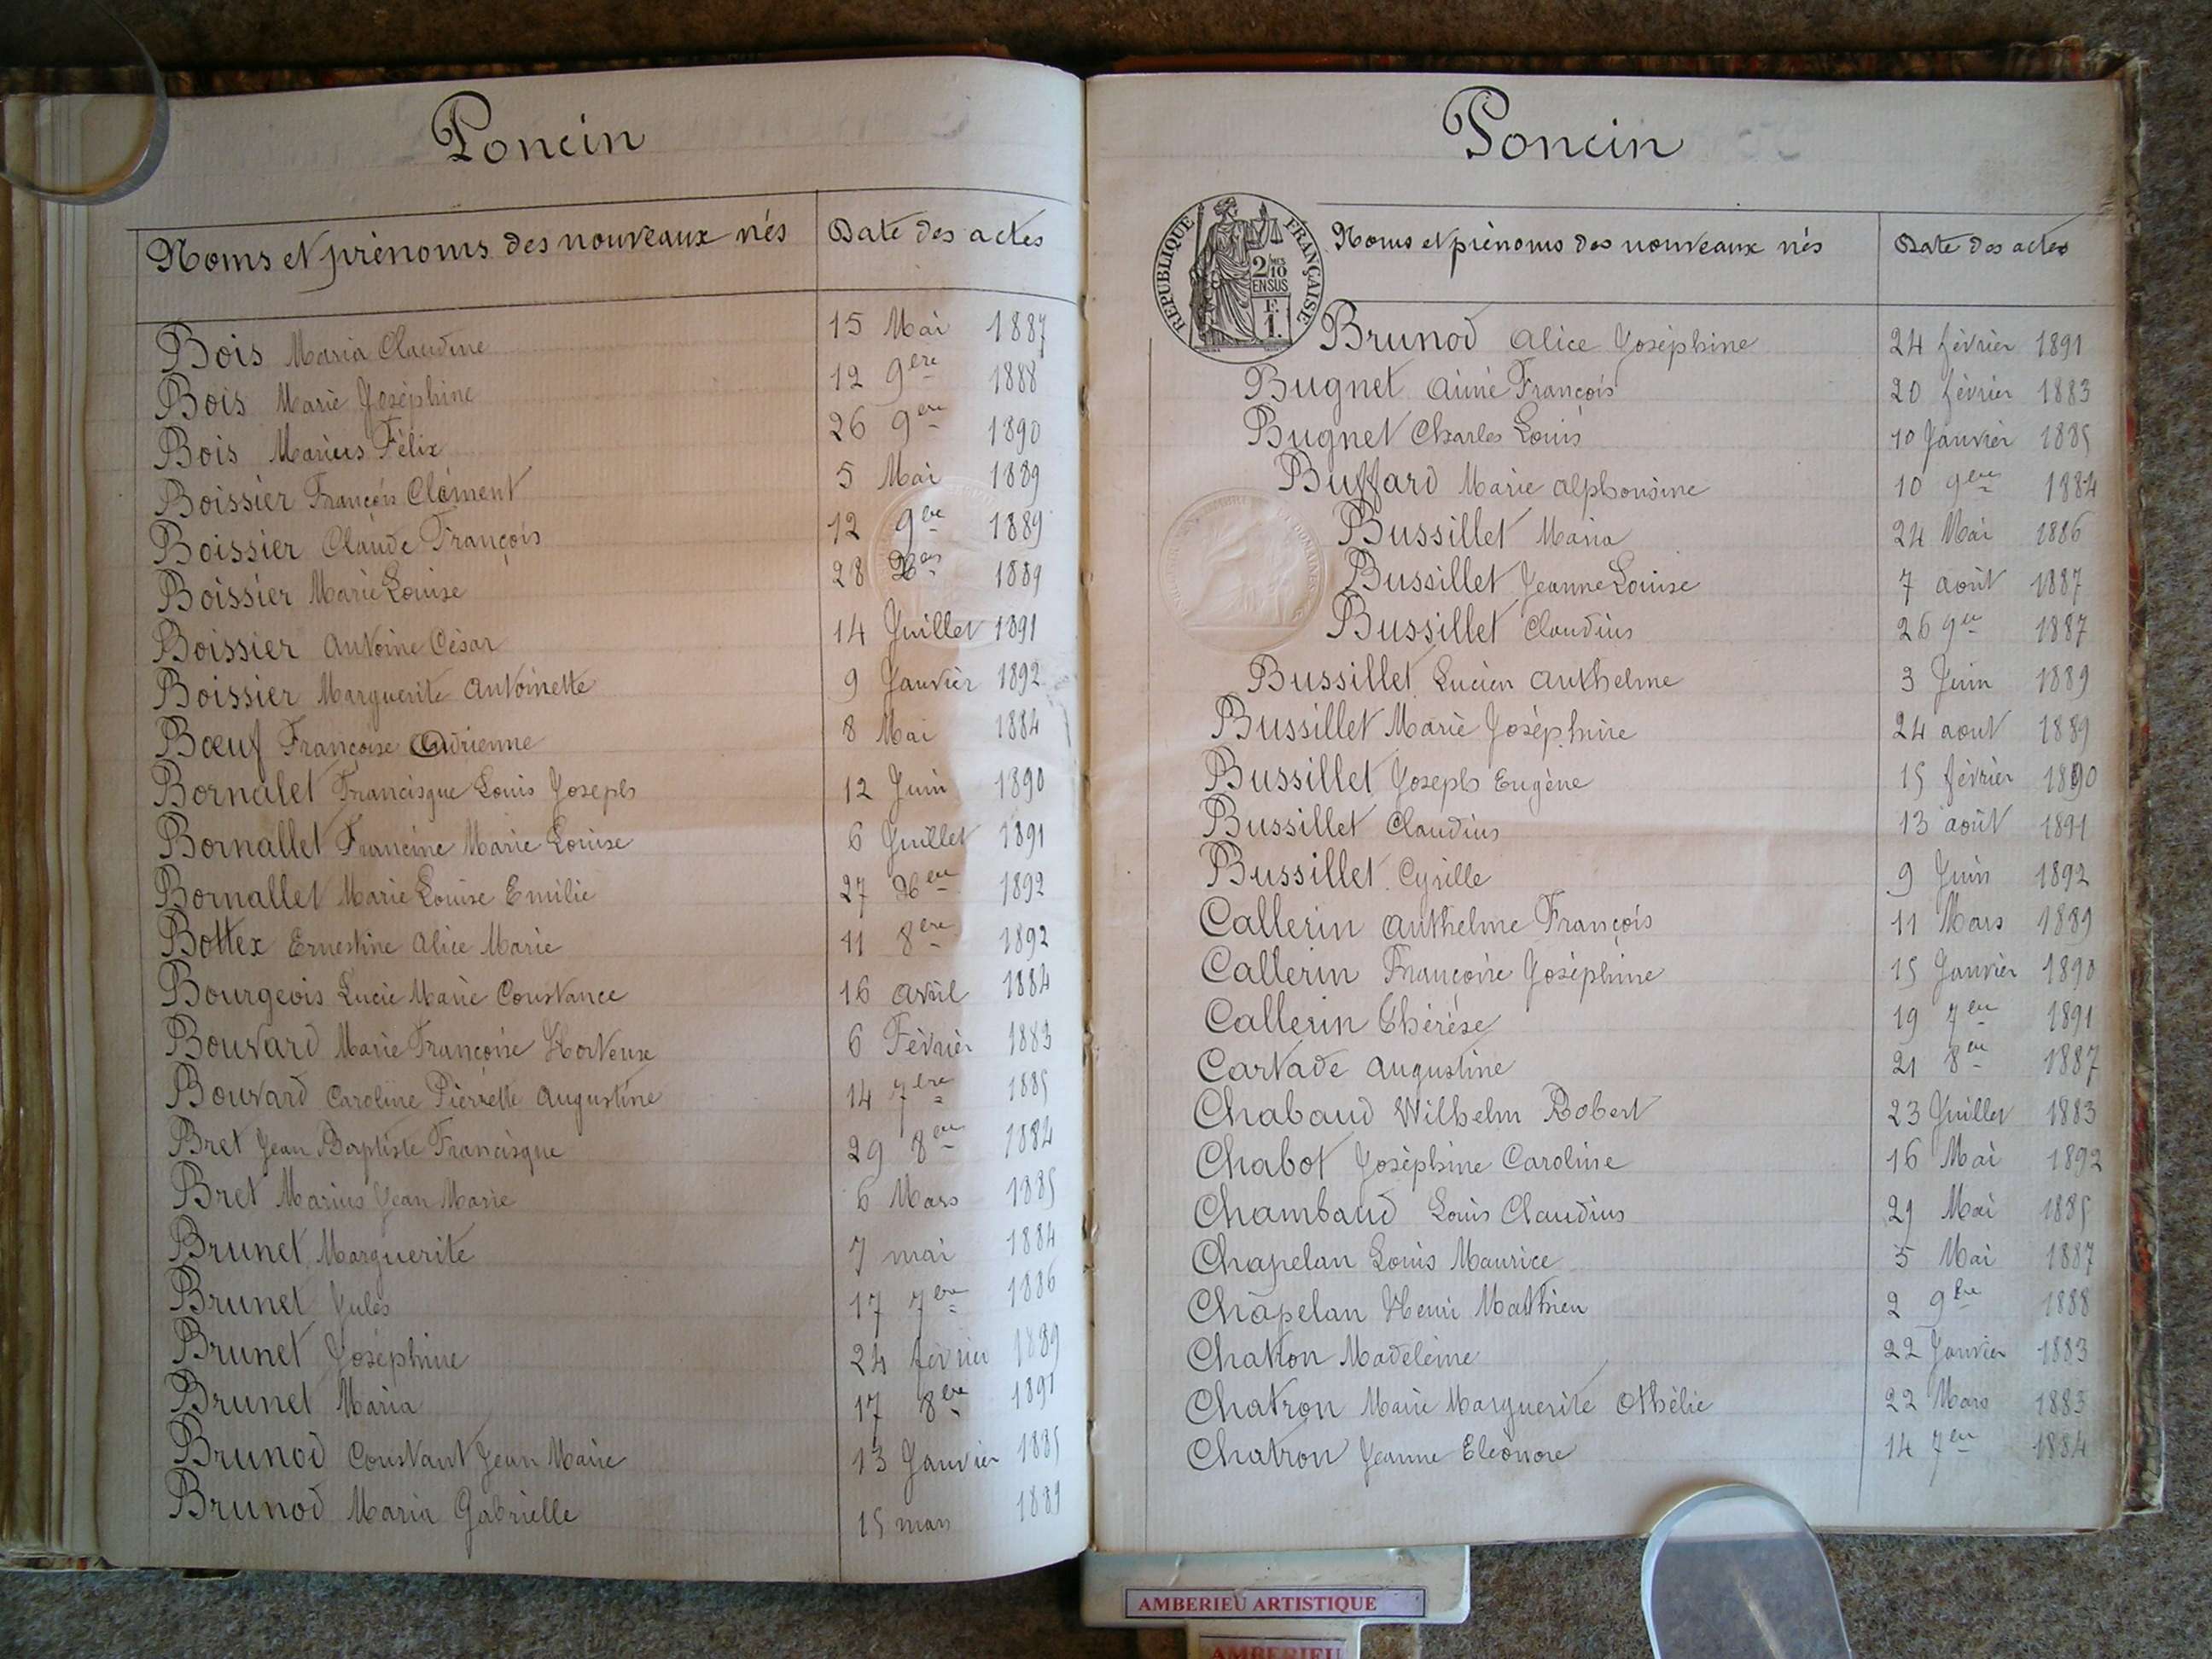 Poncin
Noms et prénoms des nouveaux nés Date des actes
Bois Maria Claudine 15 Mai 1887
Bois Marie Joséphine 12 9ere 1888
Bois Marius Félix 26 9ere 1890
Boissier François Clément 5 Mai 1889
Boissier Claude François 12 9bre 1889
Boissier Marie Louise 28 1889
Boissier Antoine César 14 Juillet 1891
Boissier Marguerite Antoinette 9 Janvier 1892
Bœuf Françoise Adrienne 8 Mai 1884
Bornalet Francisque Louis Joseph 12 Juin 1890
Bornallet Francine Marie Louise 6 Juillet 1891
Bornallet Marie Louise Emilie 27 Xbre 1892
Bottex Ernestine Alice Marie 11 8ere 1892
Bourgeois Lucie Marie Constance 16 avril 1884
Bouvard Marie Françoise Hortense 6 Février 1883
Bouvard Caroline Pierrette Augustine 14 7ere 1885
Bret Jean Baptiste Francisque 29 8ere 1884
Bret Marius Jean Marie 6 Mars 1885
Brunet Marguerite 7 mai 1884
Brunet Jules 17 7ere 1886
Brunet Joséphine 24 février 1889
Brunet Maria 17 8ere 1891
Brunod Constant Jean Marie 13 Janvier 1885
Brunod Maria Gabrielle 15 mars 1889
Poncin
REPUBLIQUE FRANÇAISE
2/10 MES
EN SUS
F.
1.
Noms et prénoms des nouveaux nés Date des actes
Brunod Alice Joséphine 24 février 1891
Bugnet Aimé François 20 février 1883
Bugnet Charles Louis 10 Janvier 1885
Buffard Marie Alphonsine 10 9ere 1884
Bussillet Maria 24 Mai 1886
Bussillet Jeanne Louise 7 août 1887
Bussillet Claudius 26 9ere 1887
Bussillet Lucien Anthelme 3 Juin 1889
Bussillet Marie Joséphine 24 aout 1889
Bussillet Joseph Eugène 15 février 1890
Bussillet Claudius 13 août 1891
Bussillet Cyrille 9 Juin 1892
Callerin Anthelme François 11 Mars 1889
Callerin Françoise Joséphine 15 Janvier 1890
Callerin Thérèse 19 7ere 1891
Cartade Augustine 21 8ere 1887
Chabaud Wilhelm Robert 23 Juillet 1883
Chabot Joséphine Caroline 16 Mai 1892
Chambaud Louis Claudius 21 Mai 1885
Chapelan Louis Maurice 5 Mai 1887
Chapelan Henri Matthieu 2 9bre 1888
Chatron Madeleine 22 Janvier 1883
Chatron Marie Marguerite Othélie 22 Mars 1883
Chatron Jeanne Eléonore 14 7ere 1884
AMBERIEU ARTISTIQUE
AMBERIEU